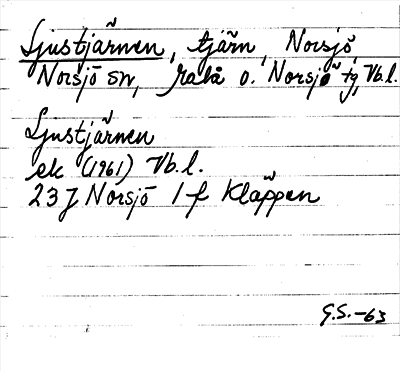 Ljustjärnen, tjärn, Norsjö,
Norsjö sn, Malå o. Norsjö tg, Vb.l.
Ljustjärnen
ek (1961) Vb.l.
23J Norsjö 1f Kläppen
G.S.-63